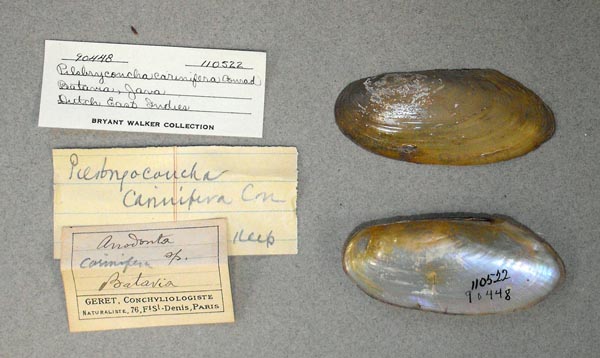 90448 110522
Pilsbryconcha carinifera Conrad
Batavia, Java
Dutch East Indies
BRYANT WALKER COLLECTION
carinifera Con
Keep
Anodonta
carinifera sp.
Batavia
GERET, CONCHYLIOLOGISTE
NATURALISTE, 76, Fg St-Denis, PARIS
110522
90448